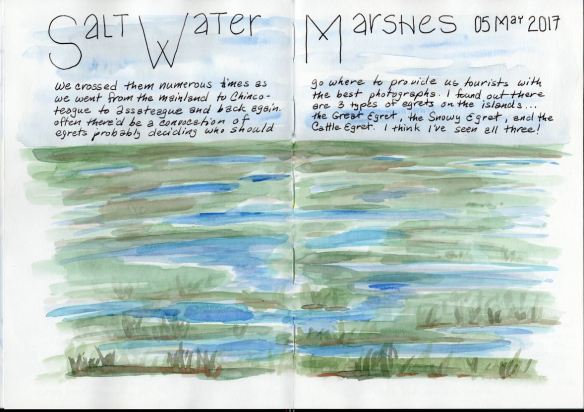 Salt Water Marshes 05 May 2017
We crossed them numerous times as
we went from the mainland to Chinco-
teague to Assateague and back again.
Often there'd be a convocation of
egrets probably deciding who should
go where to provide us tourists with
the best photographs. I found out there
are 3 types of egrets on the islands...
the Great Egret, the Snowy Egret, and the
Cattle Egret. I think I've seen all three!